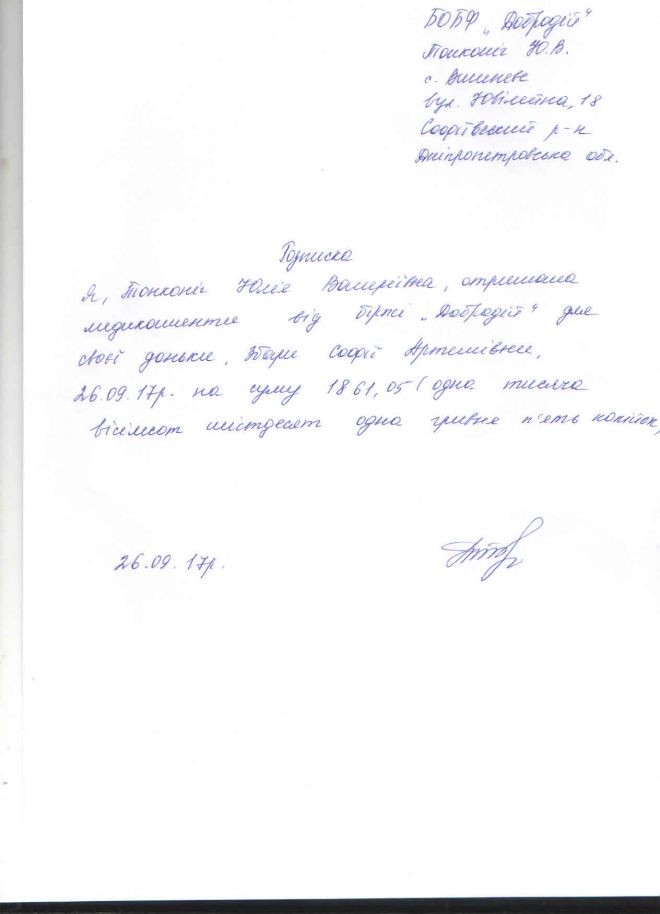 БОБФ „Добродій“
Тонконіг Ю.В.
с. Вишневе
вул. Ювілейна, 18
Софіївський р-н
Дніпропетровська обл.
Розписка
Я, Тонконіг Юлія Валеріївна, отримала
медикаменти від біржі „Добродій“ для
своєї доньки, Софії Артемівни,
26.09.17р. на суму 1861,05 (одна тисяча
вісімсот шістдесят одна гривня п'ять копійок)
26.09.17р.